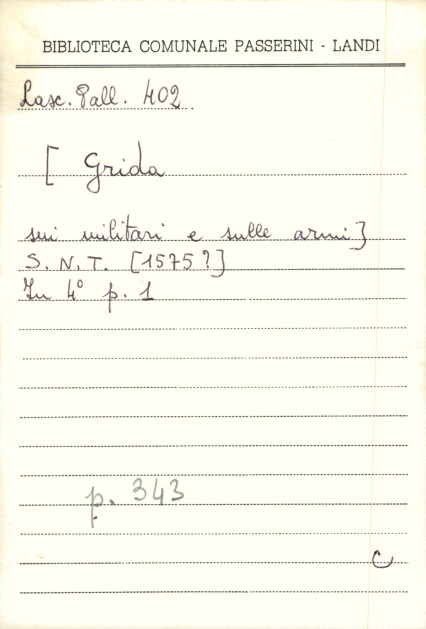 BIBLIOTECA COMUNALE PASSERINI - LANDI
Lasc. Pall. 402
[ Grida
sui militari e sulle armi]
S. N. T. [1575?]
In 4° p. 1
p. 343
C